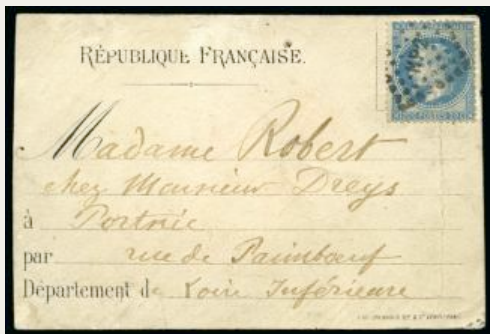 RÉPUBLIQUE FRANÇAISE.
Madame Robert
chez Monsieur Dreys
à Portnic
par rue de Paimbœuf
Département de Loire Inférieure